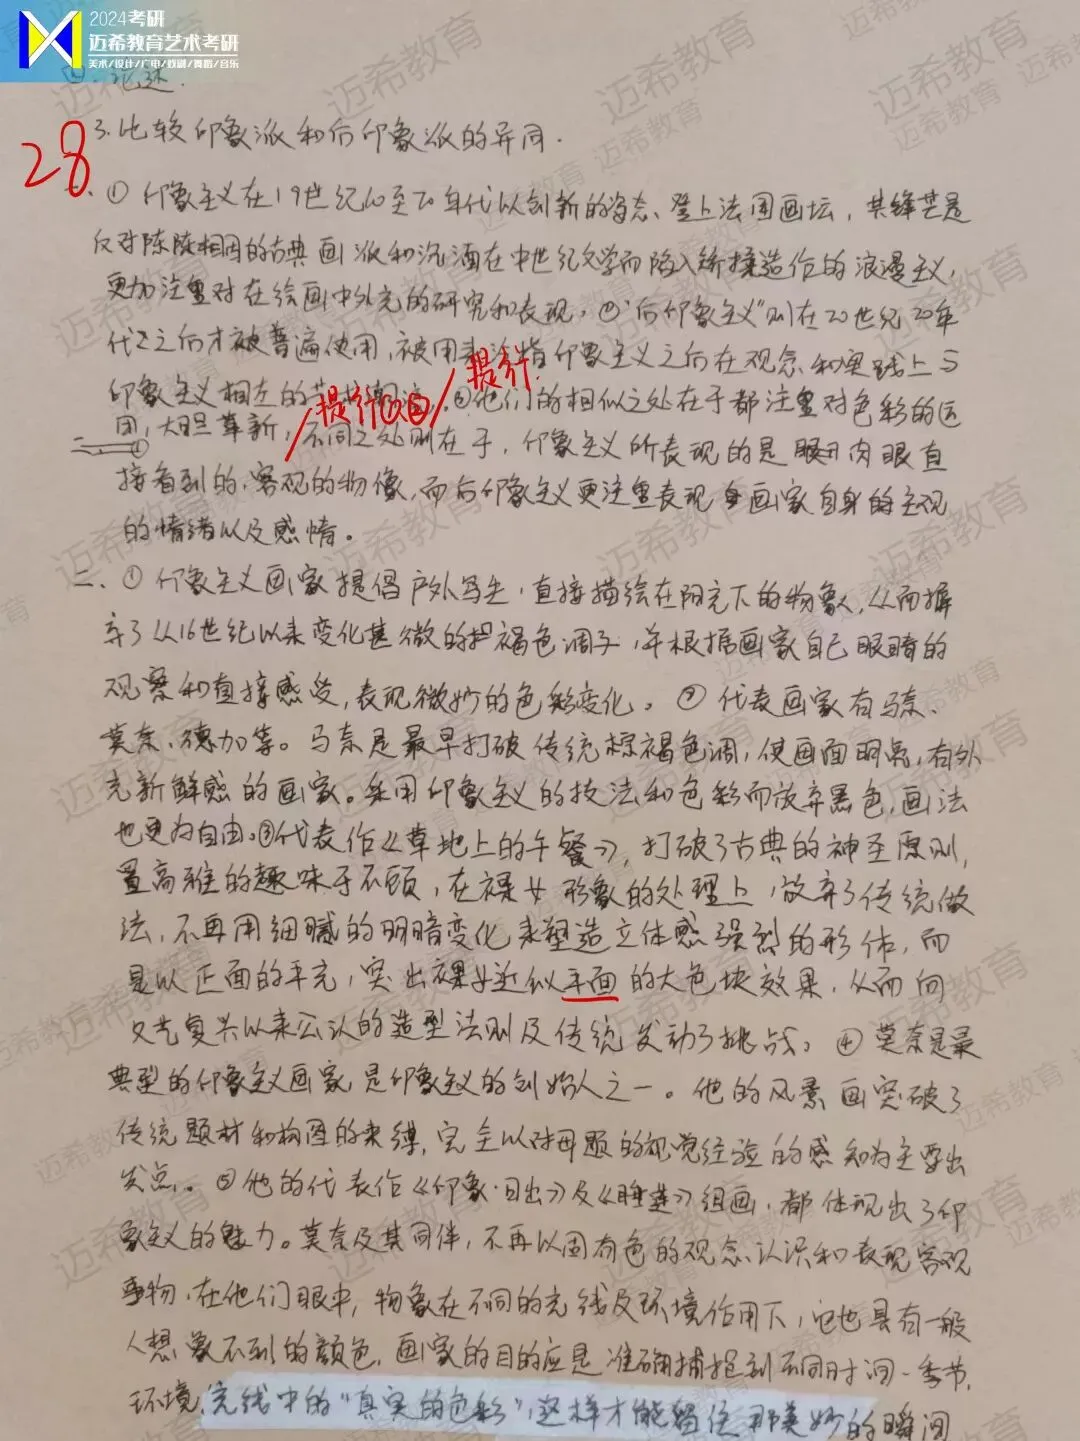 2024考研
迈希教育艺术考研
美术/设计/广电/戏剧/舞蹈/音乐
四、论述.
28
3.比较印象派和后印象派的异同.
一、①印象主义在19世纪60至70年代以创新的姿态、登上法国画坛，其锋芒是
反对陈陈相因的古典画派和沉湎在中世纪文学而陷入矫揉造作的浪漫主义，
更加注重对在绘画中外光的研究和表现，②"后印象主义"则在20世纪20年
代之后才被普遍使用，被用来 指印象主义之后在观念和实践上与
印象主义相左的 ③他们的相似之处在于都注重对色彩的运
提行
提行
用，大胆革新，不同之处则在于，印象主义所表现的是眼肉眼直
二
接看到的，客观的物像，而后印象主义更注重表现画家自身的主观
的情绪以及感情。
二、①印象主义画家提倡户外写生，直接描绘在阳光下的物象，从而摒
弃了从16世纪以来变化甚微的褐色调子，并根据画家自己眼睛的
观察和直接感受，表现微妙的色彩变化。②代表画家有马奈、
莫奈、德加等。马奈是最早打破传统棕褐色调，使画面明亮，有外
光新鲜感的画家。采用印象主义的技法和色彩而放弃黑色，画法
也更为自由。③代表作《草地上的午餐》，打破了古典的神圣原则，
置高雅的趣味于不顾，在裸女形象的处理上，放弃了传统做
法，不再用细腻的明暗变化来塑造立体感强烈的形体，而
是以正面的平光，突出裸女近似平面的大色块效果，从而向
文艺复兴以来公认的造型法则及传统发动了挑战。④莫奈是最
典型的印象主义画家，是印象主义的创始人之一。他的风景画突破了
传统题材和构图的束缚，完全以对母题的视觉经验的感知为主要出
发点。⑤他的代表作《印象·日出》及《睡莲》组画，都体现出了印
象主义的魅力。莫奈及其同伴，不再以固有色的观念认识和表现客观
事物，在他们眼中，物象在不同的光线及环境作用下，它也具有一般
人想象不到的颜色，画家的目的应是准确捕捉到不同时间、季节，
环境，光线中的"真实的色彩"，这样才能留住那美妙的瞬间
迈希教育